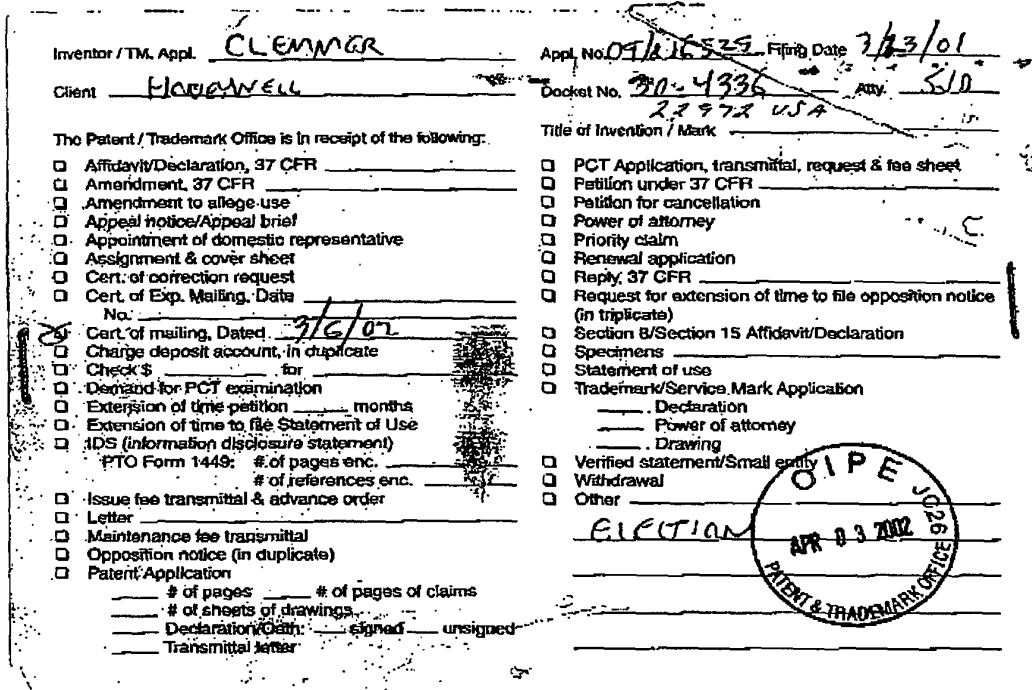 Inventor / TM. Appl. CLEMMER
Client HONEYWELL
The Patent / Trademark Office is in receipt of the following:
Affidavit/Declaration, 37 CFR
Amendment, 37 CFR
Amendment to allege use
Appeal notice/Appeal brief
Appointment of domestic representative
Assignment & cover sheet
Cert. of correction request
Cert. of Exp. Mailing, Date
No.
Cert. of mailing, Dated 3/6/02
Charge deposit account, in duplicate
Check $ for
Demand for PCT examination
Extension of time petition months
Extension of time to file Statement of Use
IDS (information disclosure statement)
PTO Form 1449: # of pages enc.
# of references enc.
Issue fee transmittal & advance order
Letter
Maintenance fee transmittal
Opposition notice (in duplicate)
Patent Application
# of pages # of pages of claims
# of sheets of drawings
Declaration/Oath: signed unsigned
Transmittal letter
Appl. No. Filing Date 3/23/01
Docket No. 30-4336 Atty.
22972 USA
Title of Invention / Mark
PCT Application, transmittal, request & fee sheet
Petition under 37 CFR
Petition for cancellation
Power of attorney
Priority claim
Renewal application
Reply, 37 CFR
Request for extension of time to file opposition notice
(in triplicate)
Section 8/Section 15 Affidavit/Declaration
Specimens
Statement of use
Trademark/Service Mark Application
Declaration
Power of attorney
Drawing
Verified statement/Small entity
Withdrawal
Other
ELECTION
OIPE JC26
APR 03 2002
PATENT & TRADEMARK OFFICE